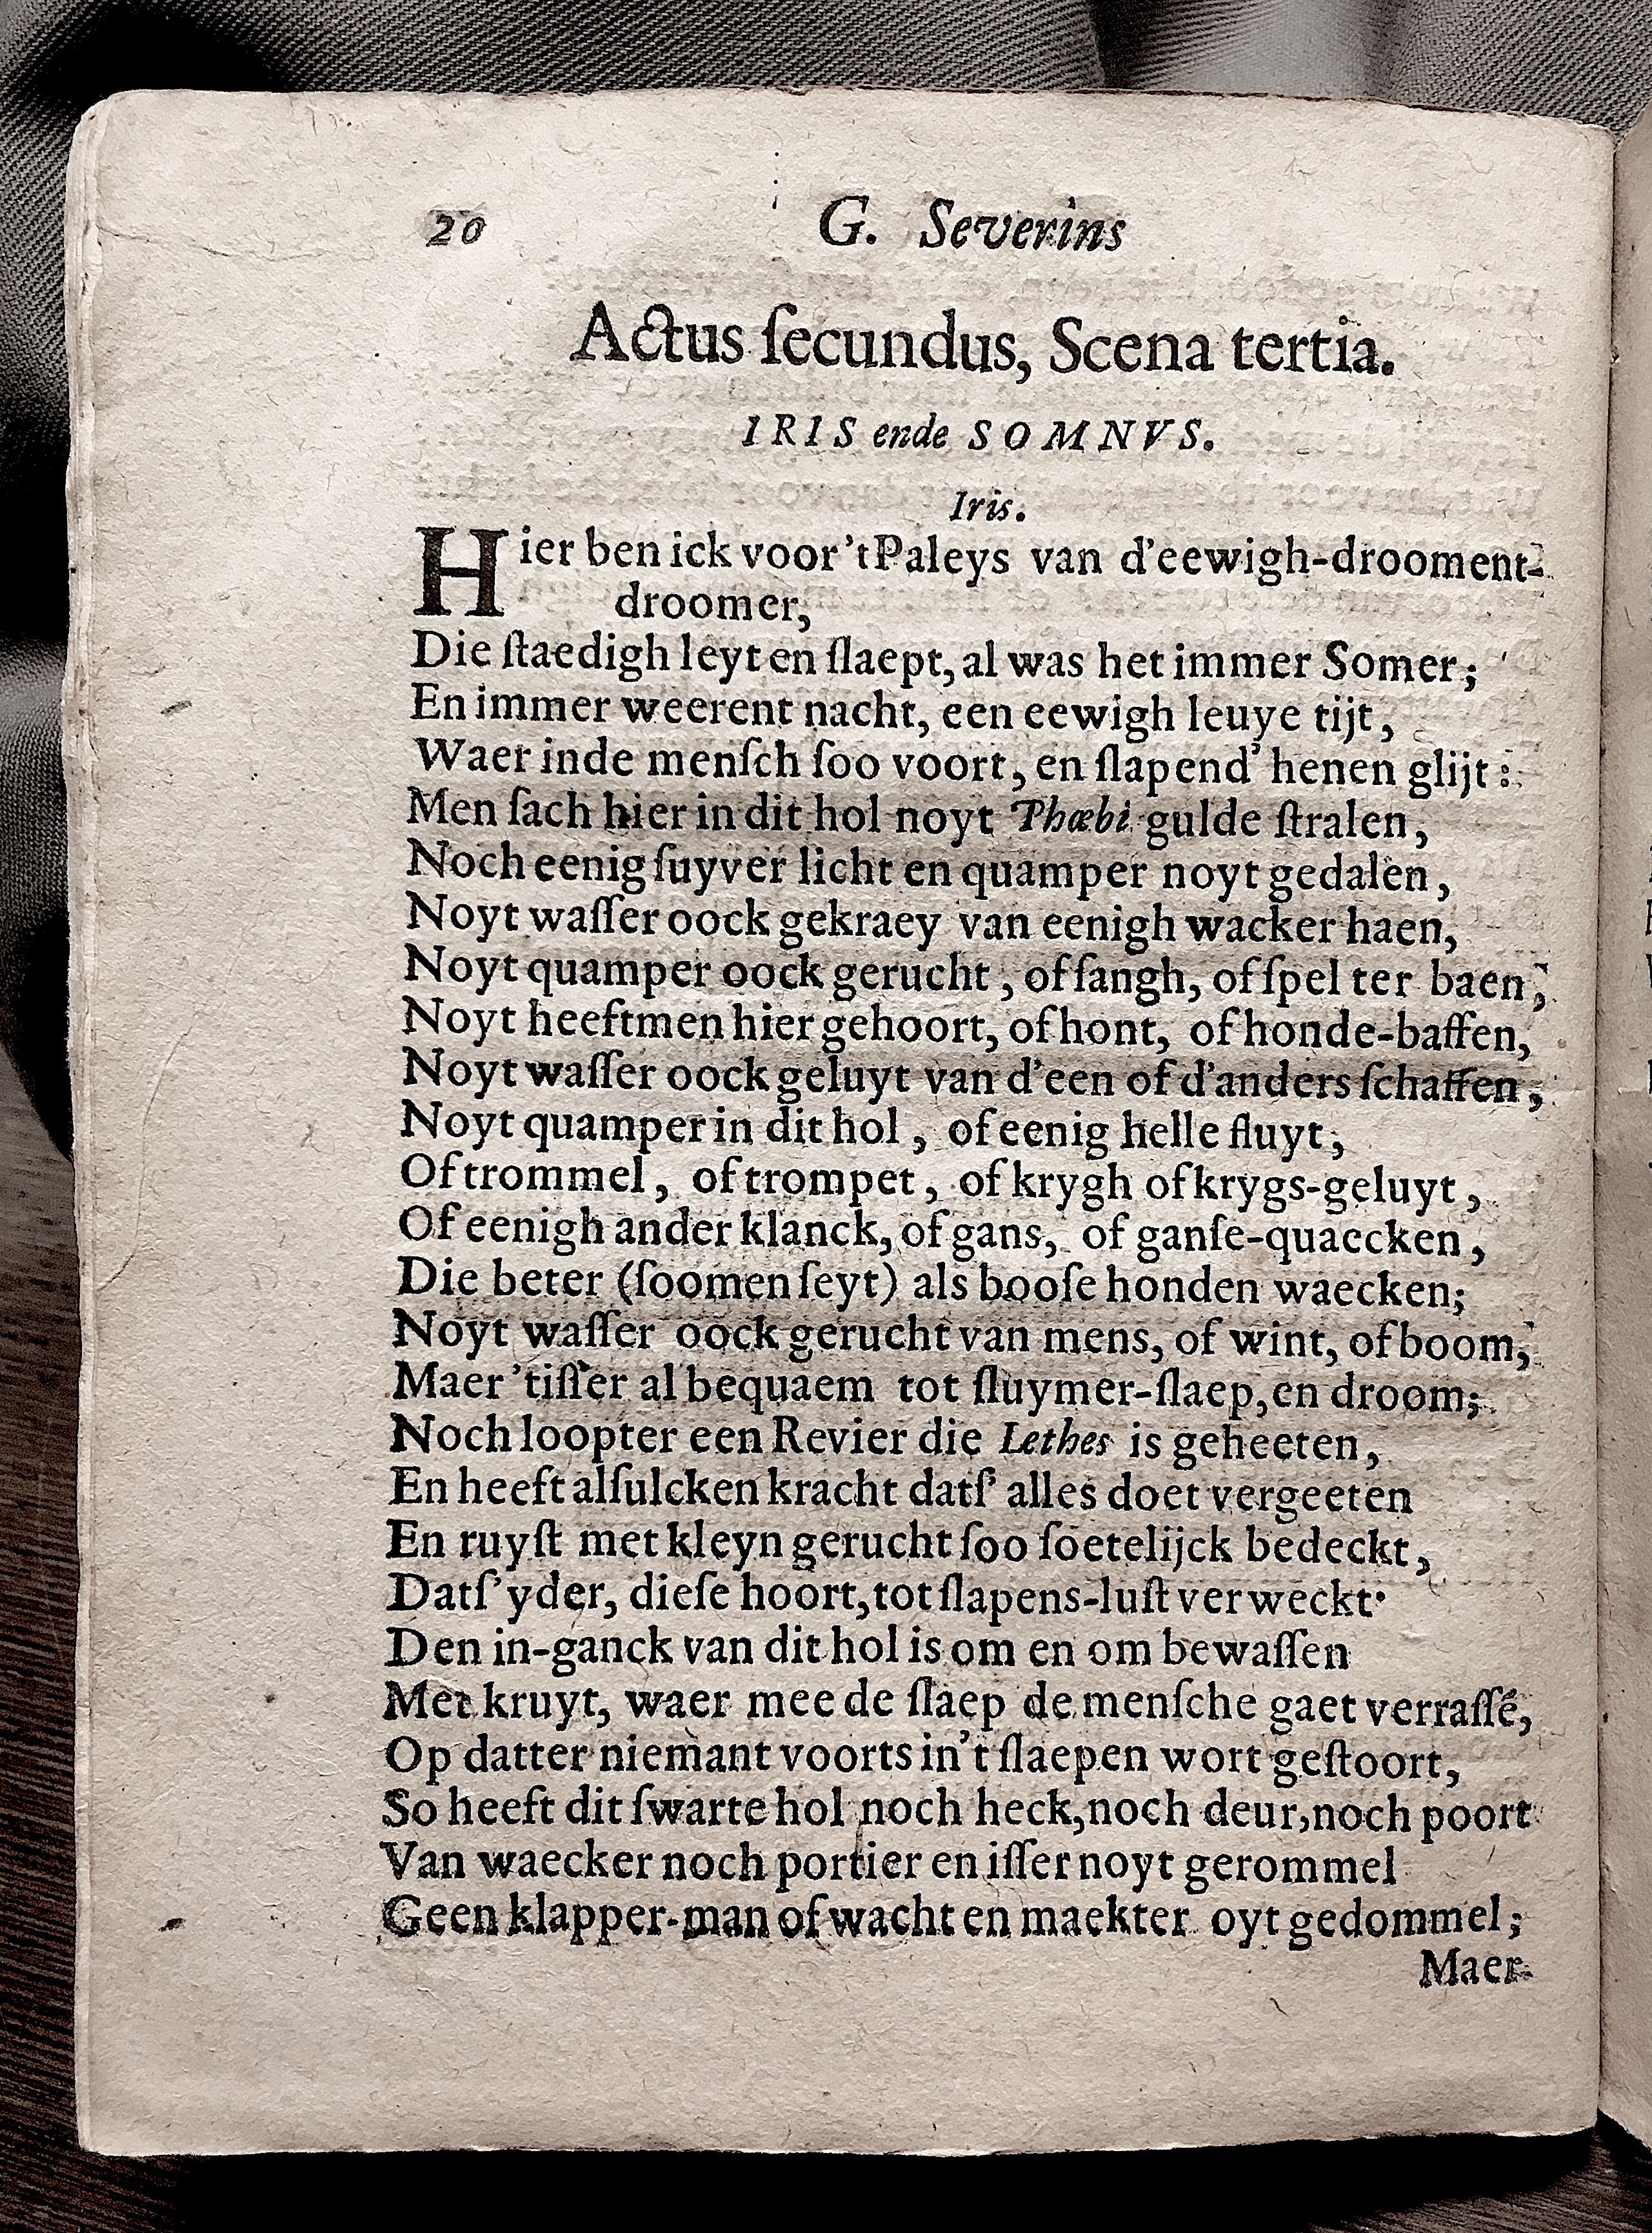 20 G. Severins
Actus ſecundus, Scena tertia.
IRIS ende SOMNVS.
Iris.
Hier ben ick voor 't Paleys van d'eewigh-drooment-
droomer,
Die ſtaedigh leyt en ſlaept, al was het immer Somer;
En immer weerent nacht, een eewigh leuye tijt,
Waer inde menſch ſoo voort, en ſlapend' henen glijt:
Men ſach hier in dit hol noyt Phœbi gulde ſtralen,
Noch eenig ſuyver licht en quamper noyt gedalen,
Noyt waſſer oock gekraey van eenigh wacker haen,
Noyt quamper oock gerucht, of ſangh, of ſpel ter baen,
Noyt heeftmen hier gehoort, of hont, of honde-baffen,
Noyt waſſer oock geluyt van d'een of d'anders ſchaffen,
Noyt quamper in dit hol, of eenig helle fluyt,
Of trommel, of trompet, of krygh of krygs-geluyt,
Of eenigh ander klanck, of gans, of ganſe-quaecken,
Die beter (ſoomen ſeyt) als booſe honden waecken;
Noyt waſſer oock gerucht van mens, of wint, of boom,
Maer 'tiſſer al bequaem tot ſluymer-ſlaep, en droom;
Noch loopter een Revier die Lethes is geheeten,
En heeft alſulcken kracht datſ' alles doet vergeeten
En ruyſt met kleyn gerucht ſoo ſoetelijck bedeckt,
Datſ' yder, dieſe hoort, tot ſlapens-luſt verweckt·
Den in-ganck van dit hol is om en om bewaſſen
Met kruyt, waer mee de ſlaep de menſche gaet verraſſē,
Op datter niemant voorts in't ſlaepen wort geſtoort,
So heeft dit ſwarte hol noch heck, noch deur, noch poort
Van waecker noch portier en iſſer noyt gerommel
Geen klapper-man of wacht en maekter oyt gedommel;
Maer